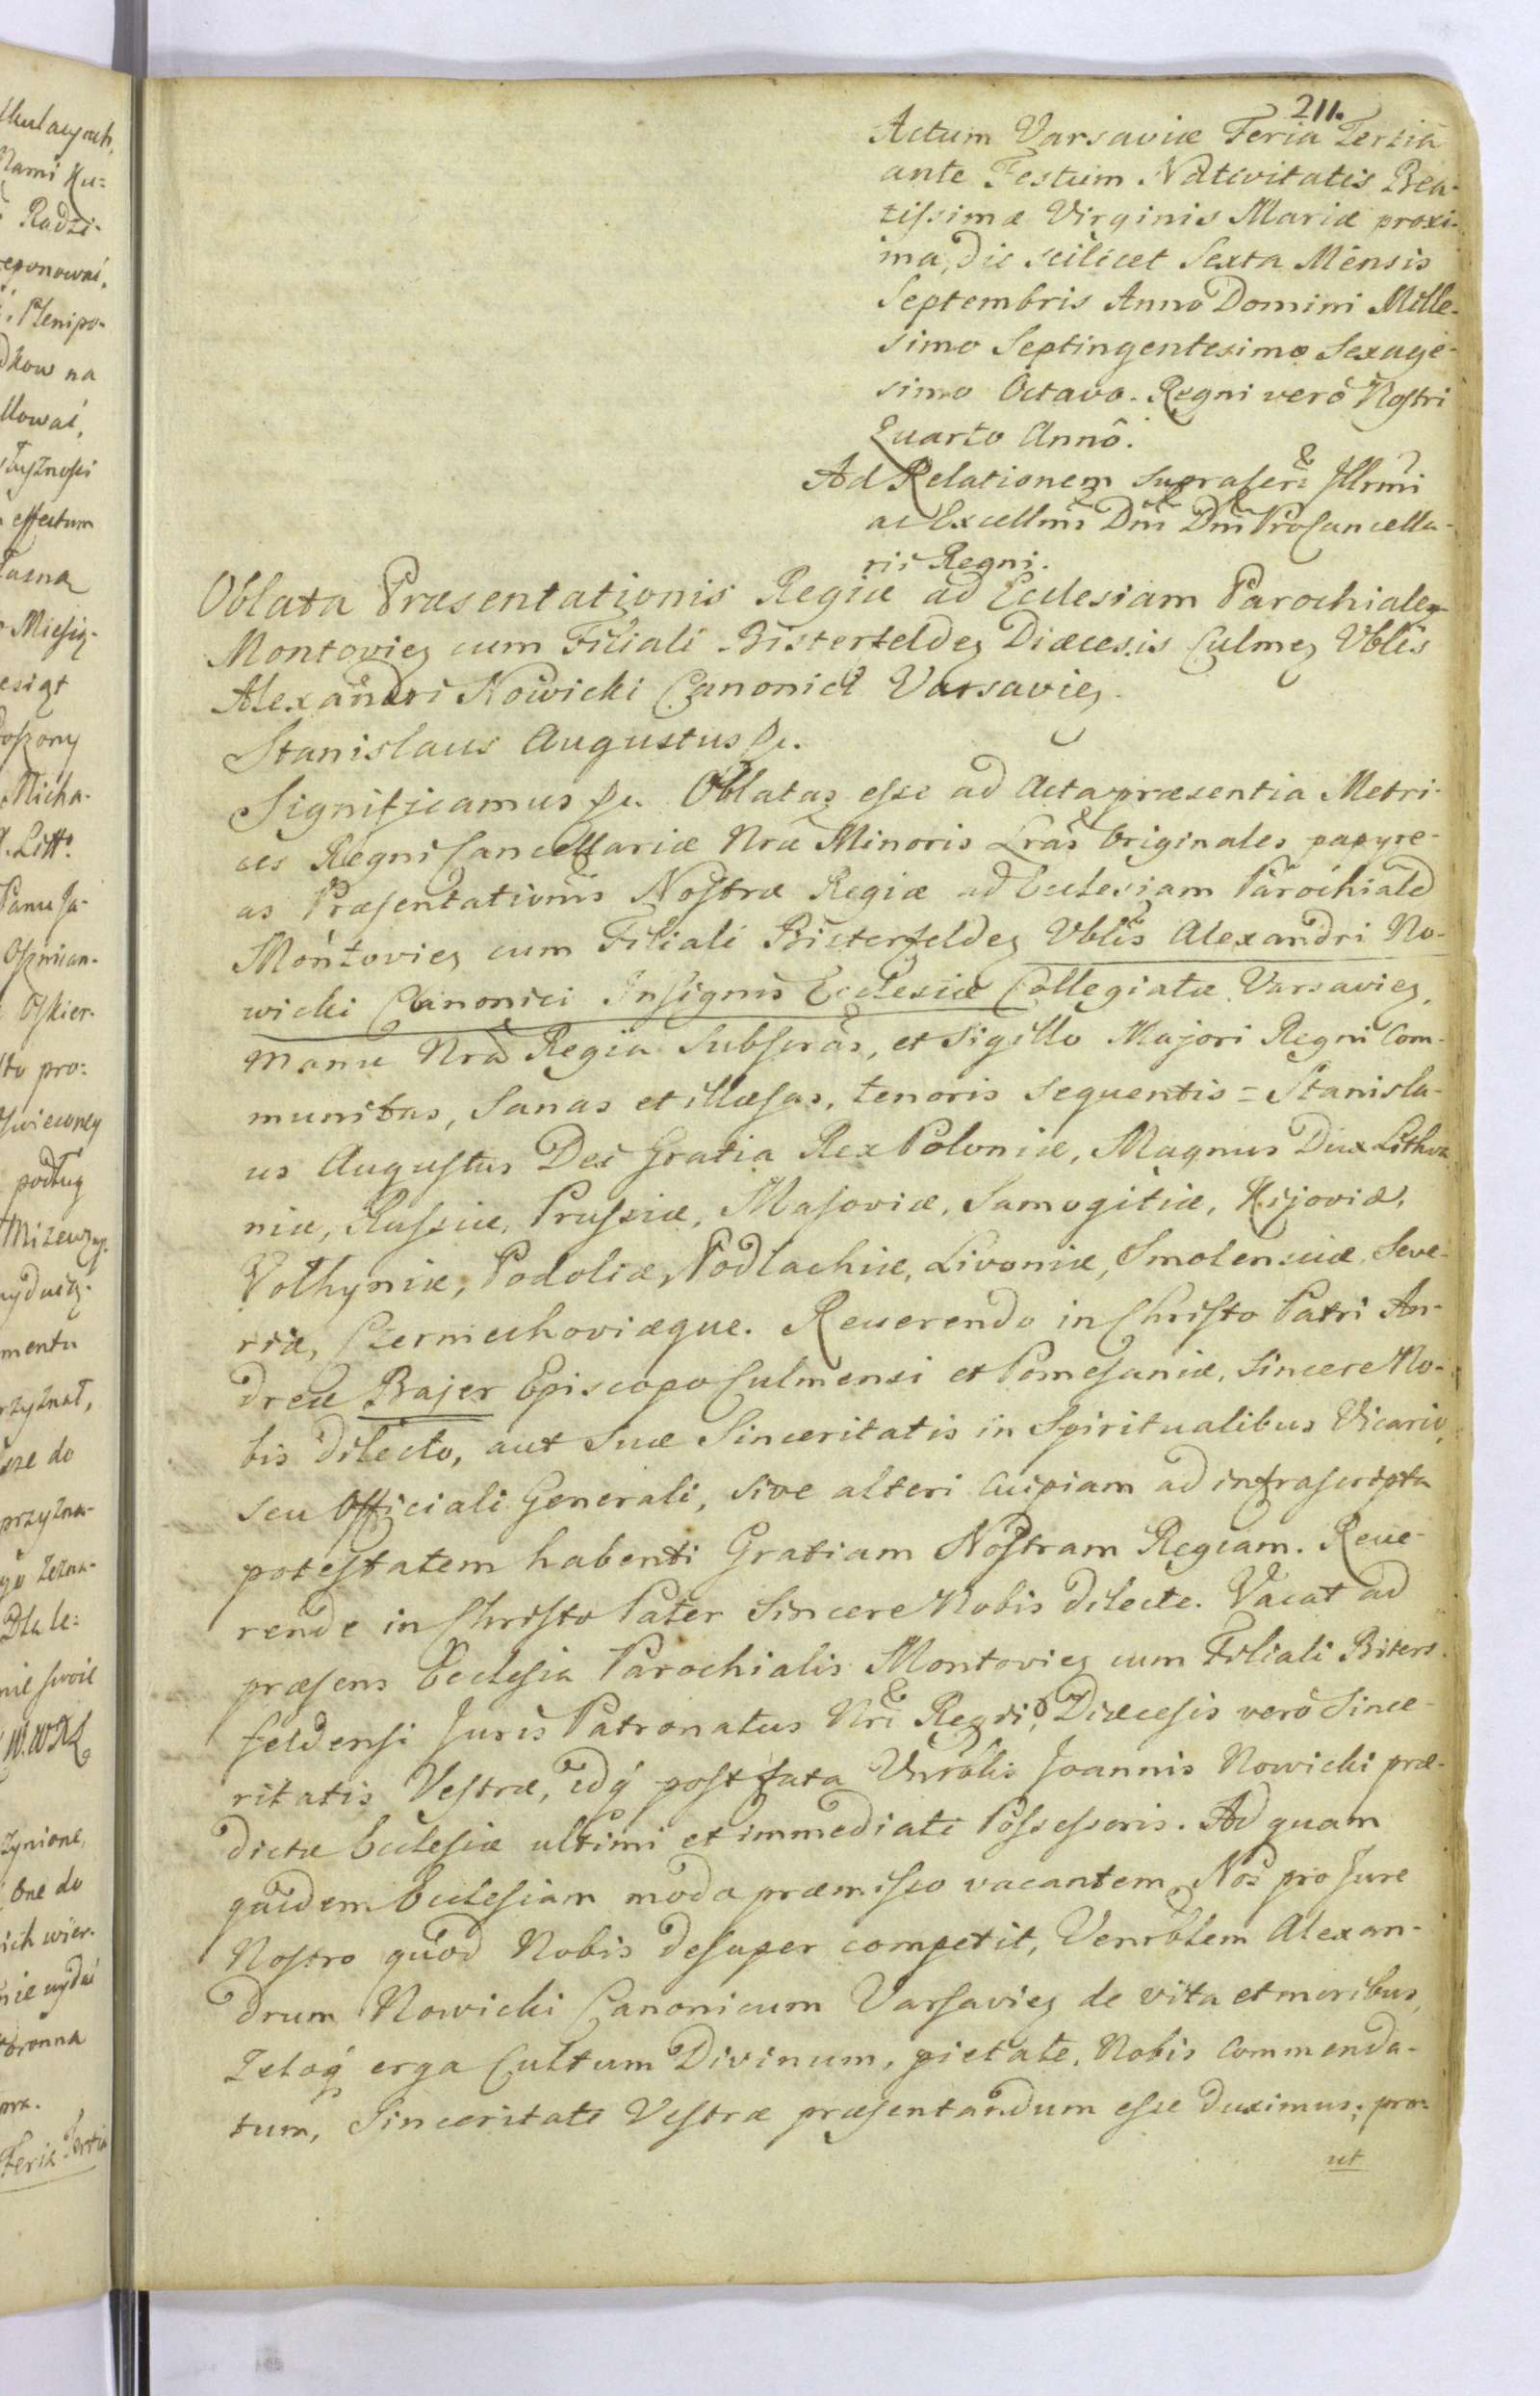 211.
Actum Varsaviæ Feria Tertia
ante Festum Nativitatis Bea-
tissimæ Virginis Mariæ proxi-
ma, die scilicet Sexta Mensis
Septembris Anno Domini Mille-
simo Septingentesimo Sexage-
simo Octavo. Regni verò Nostri
Quarto Annô.
Ad Relationem suprascri Illrmi
ac Excellmi Dni Dni ProCancella-
rii Regni.
Oblata Præsentationis Regiæ ad Ecclesiam Parochialem
Montovien cum Filiali Bisterfelden Diæcesis Culmen Vblis
Alexandri Nowicki Canonici Varsavien.
Stanislaus Augustus &c.
Significamus &c. Oblatas esse ad Acta præsentia Metri-
ces Regni Cancellariæ Nræ Minoris Lras Originales papyre-
as Præsentationis Nostræ Regiæ ad Ecclesiam Parochiale
Montovien cum Filiali Bisterfelden Vblis Alexandri No-
wicki Canonici Insignis Ecclesiæ Collegiatæ Varsavien,
manu Nra Regia Subscras, et Sigillo Majori Regni Com-
munitas, Sanas et illæsas, tenoris sequentis = Stanisla-
us Augustus Dei Gratia Rex Poloniæ, Magnus Dux Lithva
niæ, Russiæ, Prussiæ, Masoviæ, Samogitiæ, Kijoviæ,
Volhyniæ, Podoliæ, Podlachiæ, Livoniæ, Smolensciæ, Seve-
riæ, Czerniechoviæque. Reverendo in Christo Patri An-
dreæ Bajer Episcopo Culmensi et Pomesaniæ, Sincere No-
bis Dilecto, aut Suæ Sinceritatis in Spiritualibus Vicario,
seu Officiali Generali, sive alteri cuipiam ad infrascripta
potestatem habenti Gratiam Nostram Regiam. Reve-
rende in Christo Pater Sincere Nobis dilecte. Vacat ad
præsens Ecclesia Parochialis Montovien cum Filiali Biters
feldensi Juris Patronatus Nri Regii, Diæcesis verò Since-
ritatis Vestræ, idq́ post fata Vnrablis Joannis Nowicki præ-
dictæ Ecclesiæ ultimi et immediati Possessoris. Ad quam
quidem Ecclesiam modo præmisso vacantem, Nos pro Jure
Nostro quod Nobis desuper competit, Venrblem Alexan-
drum Nowicki Canonicum Varsavien de vita et moribus,
Zeloq́ erga Cultum Divinum, pietate, Nobis commenda-
tum, Sinceritati Vestræ præsentandum esse duximus; pro-
ut